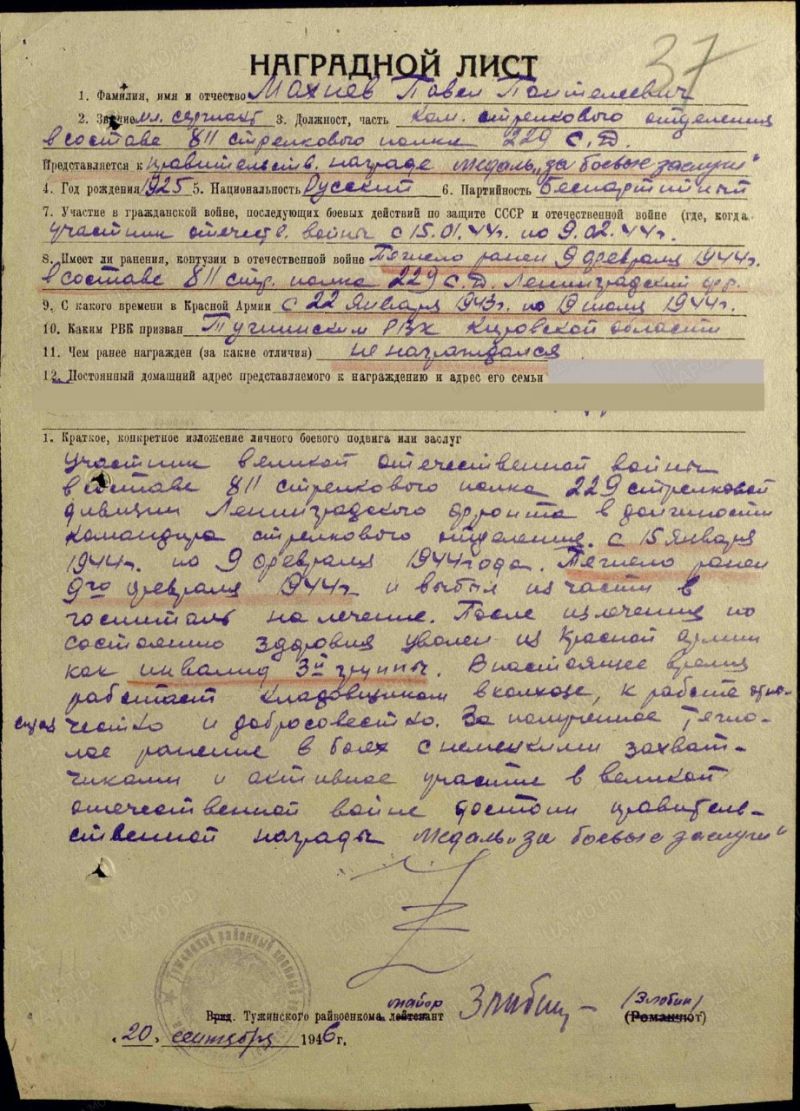 37
НАГРАДНОЙ ЛИСТ
1. Фамилия, имя и отчество Махнев Павел Пантелеевич
2. Звание мл. сержант 3. Должност, часть Ком. стрелкового отделения
в составе 811 стрелкового полка 229 С.Д.
Представляется к правительств. награде медаль „за боевые заслуги"
4. Год рождения 1925 5. Национальность Русский 6. Партийность Беспартийный
7. Участие в гражданской войне, последующих боевых действий по защите СССР и отечественной войне (где, когда
участник отечеств. войны с 15.01.44г. по 9.02.44г.
8. Имеет ли ранения, контузии в отечественной войне Тяжело ранен 9 февраля 1944г.
в составе 811 стр. полка 229 С.Д. Ленинградский фр.
9. С какого времени в Красной Армии с 22 января 1943г. по 9 июля 1944г.
10. Каким РВК призван Тужинским РВК Кировской области
11. Чем ранее награжден (за какие отличия) не награждался
12. Постоянный домашний адрес представляемого к награждению и адрес его семьи
1. Краткое, конкретное изложение личного боевого подвига или заслуг
Участник великой отечественной войны
в составе 811 стрелкового полка 229 стрелковой
дивизии Ленинградского фронта в должности
командира стрелкового отделения. с 15 января
1944г. по 9 февраля 1944 года. Тяжело ранен
9го февраля 1944г. и выбыл из части в
госпиталь на лечение. После излечения по
состоянию здоровия уволен из Красной армии
как инвалид 3й группы. В настоящее время
работает кладовщиком в колхозе, к работе относ
чество и добросовестно. За полученное тяже-
лое ранение в боях с немецкими захват-
чиками и активное участие в великой
отечественной войне достоин правитель-
ственной награды медаль „за боевые заслуги"
Врид. Тужинского райвоенкома майор лейтенант Злобин (Злобин)
„20" сентября 1946 г.